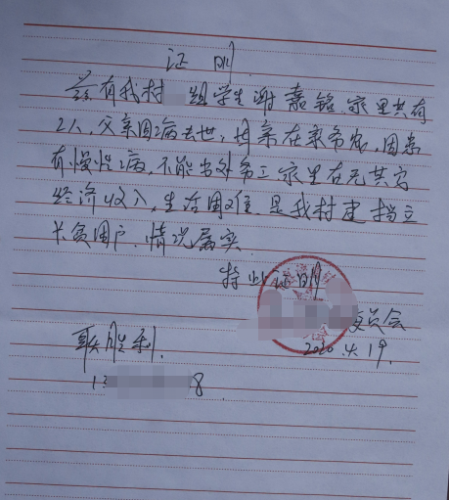 证明
兹有我村 组学生谢嘉铭,家里共有
2人,父亲因病去世,母亲在家务农,因患
有慢性病,不能出外务工家里在无其它
经济收入,生活困难.是我村建档立
卡贫困户.情况属实.
特此证明
委员会
2020.4.19.
联胜利.
13 8